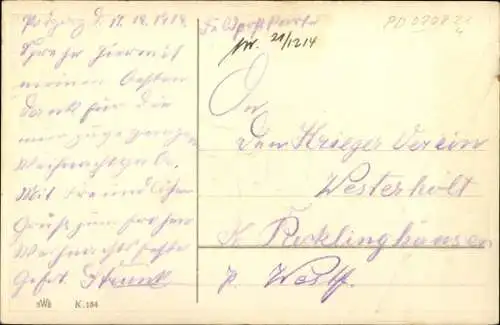 d. 17. 12. 1914
Spreche hiermit
meinen besten
Dank für die
mir zugegangene
Weihnachtsgabe.
Mit freundlichem
Gruß zum frohen
Weihnachtsfeste
Gefrt. Strunk
Feldpostkarte
21/12 14
PD 07082
An
den Krieger Verein
Westerholt
K. Recklinghausen
p. Westf.
SWB K. 184